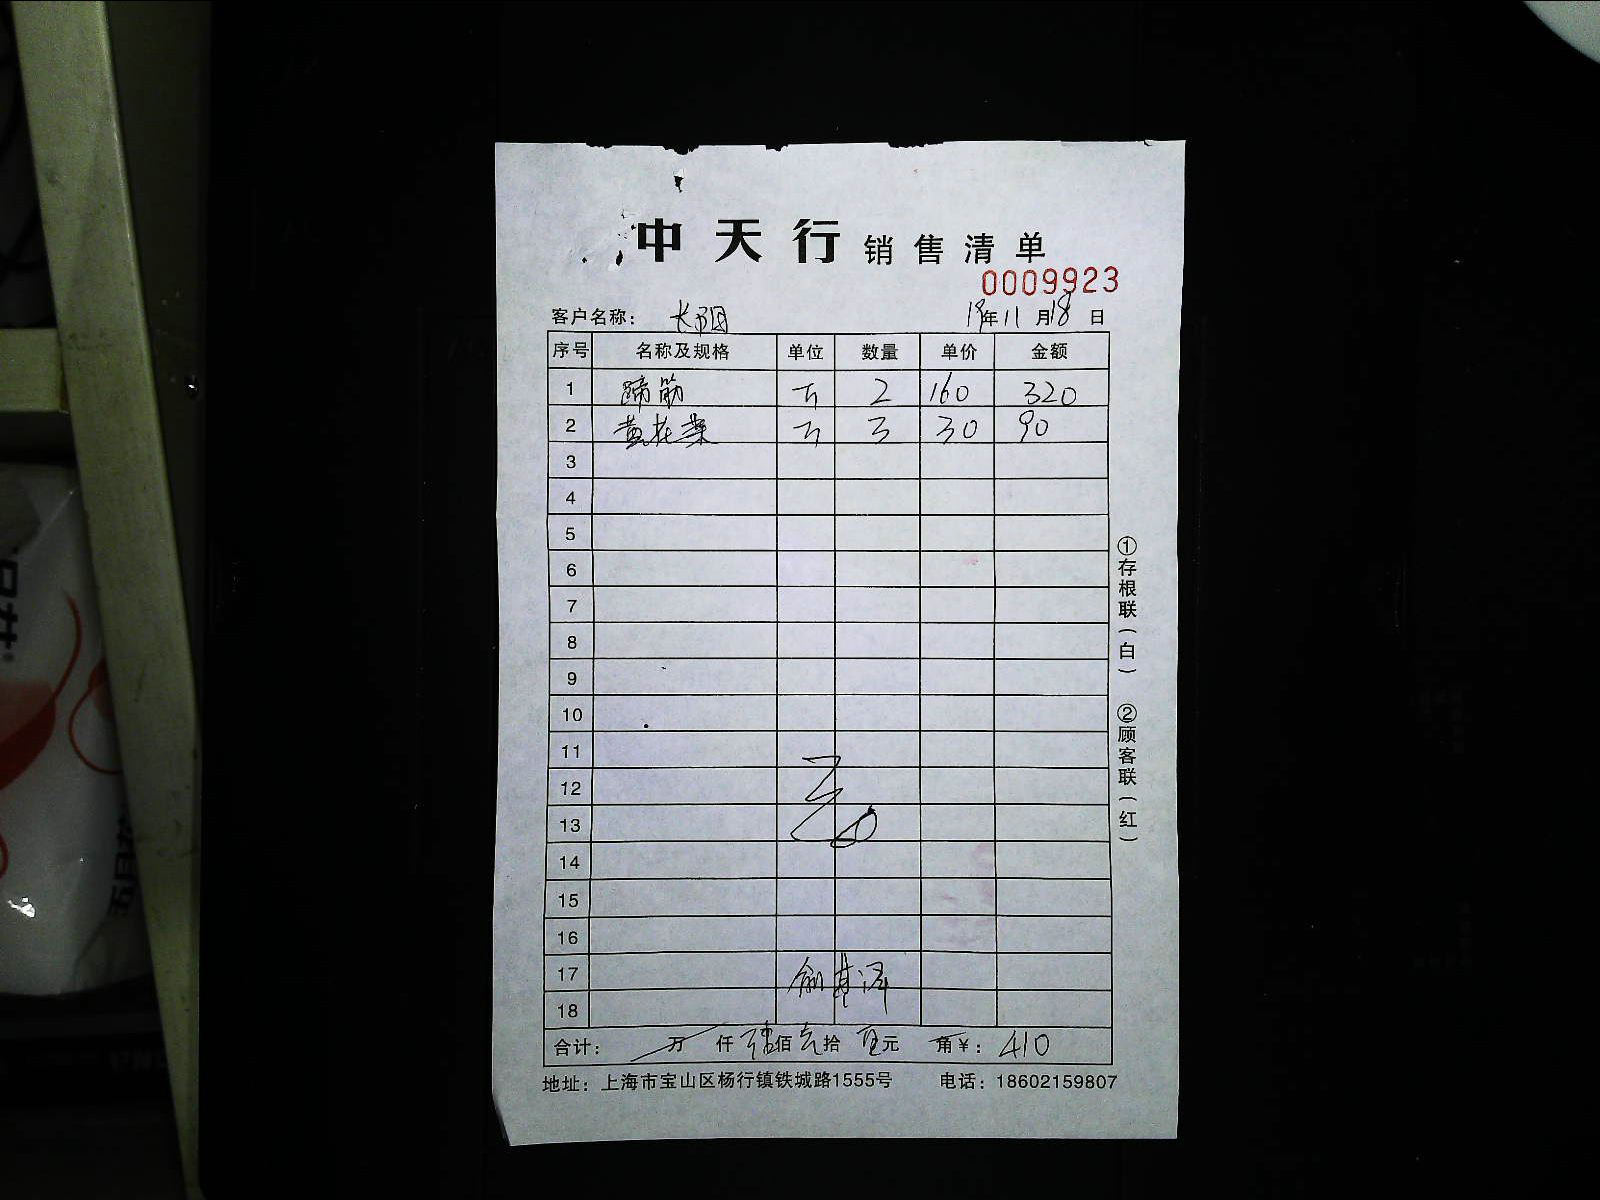 中天行 销售清单
0009923
客户名称： 长阳 19年11月18日
序号 名称及规格 单位 数量 单价 金额
1 蹄筋 2 160 320
2 黄花菜 3 30 90
3
4
5
6
7
8
9
10
11
12
13
14
15
16
17
18
合计： 万 仟 肆佰壹拾 零元 角￥： 410
地址：上海市宝山区杨行镇铁城路1555号 电话：18602159807
①存根联（白） ②顾客联（红）